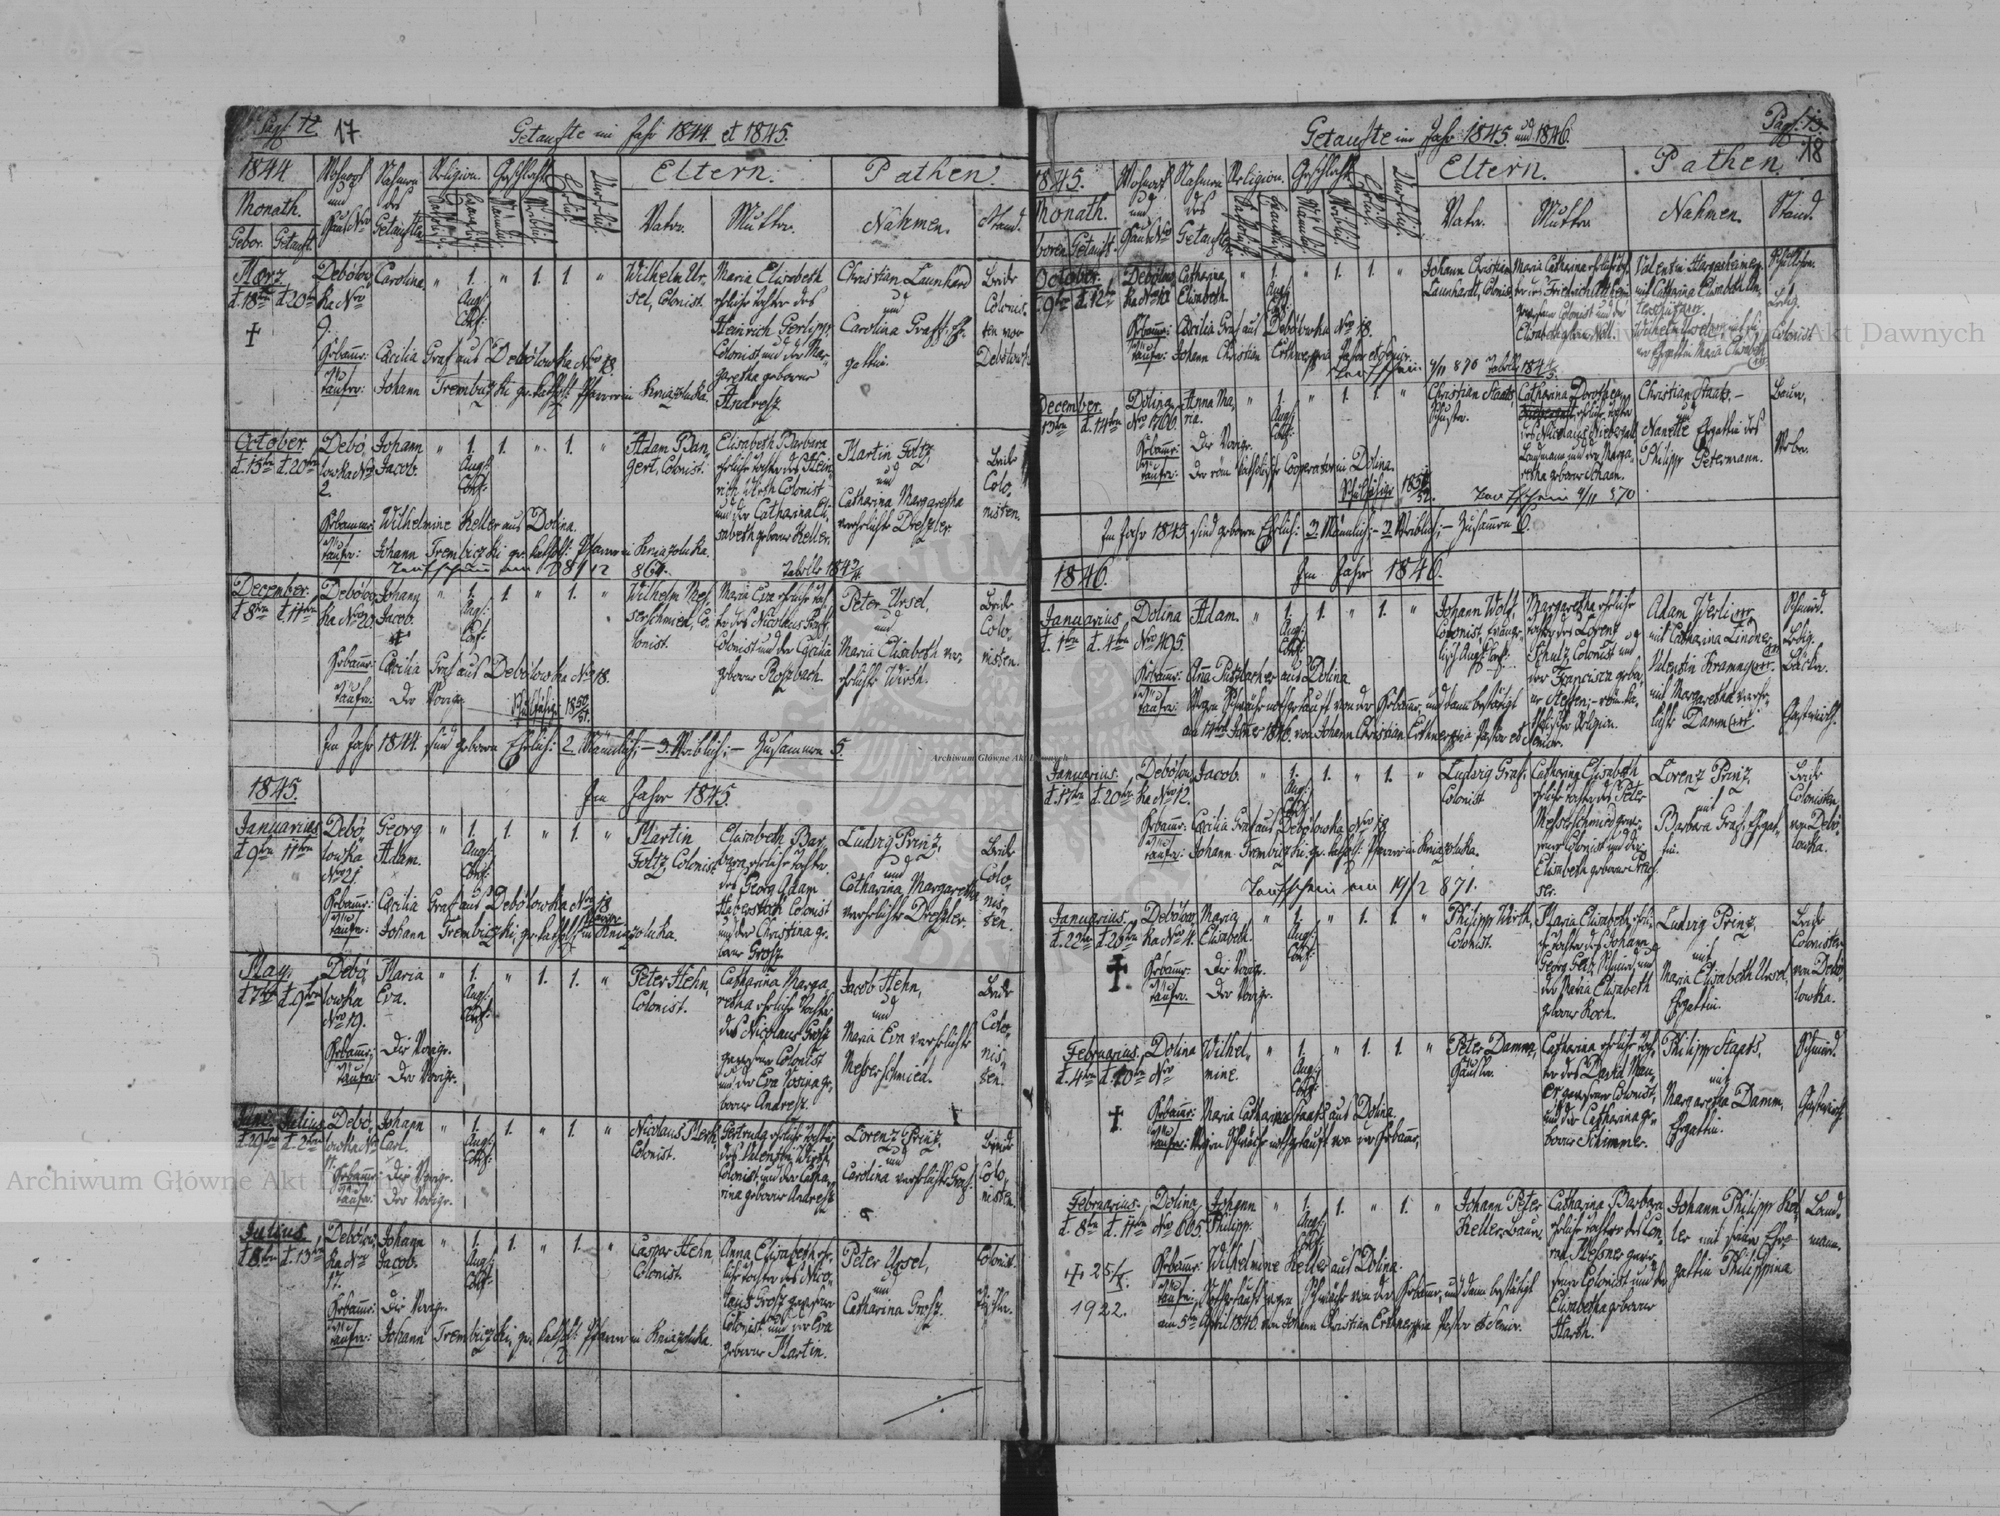 Pag. 12.
17.
Getaufte im Jahr 1844. et 1845.
1844
Wohnort und Haus Nro
Nahmen des Getauften
Religion.
Geschlecht
Eltern.
Pathen.
Monath.
Gebor. Getauft.
Vater.
Mutter.
Nahmen.
Stand.
März
d. 18ten d. 20ten
Debolow,
ka Nro
9.
Carolina.
" 1. " 1. 1 "
Augs:
Conf:
Wilhelm Ur,
sel, Colonist.
Maria Elisabeth
eheliche Tochter des
Heinrich Gerlipp,
Colonist und der Mar,
garetha geborene
Andresz
Christian Launhard
und
Carolina Graff, Eh,
gattin.
Beide
Colonis,
ten von
Debolowka
Hebamme: Cacilia Graf aus Debolowka Nro 18.
Taufer: Johann Trembiczki gr. kathol: Pfarrer in Kniazoluka.
October
d. 15ten d. 20ten
Debo,
lowka Nro
2.
Johann
Jacob.
" 1. 1. " 1. "
Augs:
Conf:
Adam Ban,
gert, Colonist.
Elisabeth Barbara
eheliche Tochter des Hein,
rich Wirth Colonist
und der Catharina Eli,
sabeth geborene Keller.
Martin Foltz,
und
Catharina Margaretha
verehelichte Dreszler.
Beide
Colo,
nisten.
Hebamme: Wilhelmine Keller aus Dolina.
Taufer: Johann Trembiczki gr. kathol: Pfarrer in Kniazoluka.
Taufschein am 28/12 864.
December
d. 8ten d. 11ten
Debolow,
ka Nro 20.
Johann
Jacob.
" 1. 1. " 1. "
Augs:
Conf:
Wilhelm Mes,
serschmied, Co,
lonist.
Maria Eva eheliche Toch,
ter des Nicolaus Graff
Colonist und der Cacilia
geborene Roszbach.
Peter Ursel,
und
Maria Elisabeth ver,
ehelichte Wirth.
Beide
Colo,
nisten.
Hebamme: Cacilia Graf aus Debolowka Nro 18.
Taufer: Der Vorige.
Im Jahr 1844. sind geboren Ehelich: 2. Männlich; — 3. Weiblich; — Zusammen 5.
1845.
Im Jahr 1845.
Januarius
d. 9ten 11ten
Debo,
lowka
Nro 21
Georg
Adam.
" 1. 1. " 1. "
Augs:
Conf:
Martin
Foltz, Colonist.
Elisabeth Bar,
bara, eheliche Tochter
des Georg Adam
Haberstock Colonist
und der Christina ge,
borene Grosz.
Ludwig Prinz,
und
Catharina Margaretha
verehelichte Dreszler.
Beide
Colo,
nis,
ten.
Hebamme: Cacilia Graf aus Debolowka Nro 18
Taufer: Johann Trembiczki, gr. kathol: Pfarrer in Kniazoluka.
May,
d. 7ten d. 9ten
Debo,
lowka
Nro 19.
Maria
Eva.
" 1. " 1. 1. "
Augs:
Conf:
Peter Hehn,
Colonist.
Catharina Marga,
retha eheliche Tochter
des Nicolaus Grosz
gewesener Colonist
und der Eva Rosina ge,
borene Andresz.
Jacob Hehn,
und
Maria Eva verehelichte
Meszerschmied.
Beide
Colo,
nis,
ten.
Hebamme: Die Vorige.
Taufer: Der Vorige.
Juni, Julius
d. 29ten d. 2ten
Debo,
lowka Nro
Johann
Carl.
" 1. 1. " 1. "
Augs:
Conf:
Nicolaus Merk,
Colonist.
Gertruda eheliche Tochter
des Valentin Wirth,
Colonist, und der Catha,
rina geborene Andresz
Lorenz Prinz,
und
Carolina verehelichte Graf.
Beide
Colo,
nisten.
Hebamme: Die Vorige.
Taufer: Der Vorige.
Julius
d. 8ten d. 13ten
Debolow,
ka Nro
17.
Johann
Jacob.
" 1. 1. " 1. "
Augs:
Conf:
Caspar Hehn,
Colonist.
Anna Elisabeth ehe,
liche Tochter des Nico,
laus Grosz gewesener
Colonist und der Eva
geborene Martin.
Peter Ursel,
und
Catharina Grosz.
Colonist.
Hebamme: Die Vorige.
Taufer: Johann Trembiczki, gr. kathol: Pfarrer in Kniazoluka.
Pag. 13.
18
Getaufte im Jahr 1845. und 1846.
1845.
Wohnort und Haus Nro
Nahmen des Getauften
Religion.
Geschlecht
Eltern.
Pathen.
Monath.
boren Getauft.
Vater.
Mutter.
Nahmen.
Stand.
October.
d. 9ten d. 12ten
Debolow,
ka Nro
Catharina
Elisabeth.
" 1. " 1. 1. "
Augs:
Conf:
Johann Christian
Launhardt, Colonist
Maria Catharina eheliche Toch,
ter des Friedrich
gewesener Colonist und der
Valentin
mit Catharina Elisabeth
Ledig.
Colonist
Hebamme: Cacilia Graf aus Debolowka Nro 18.
Taufer: Johann Christian Pastor et Senior.
Taufschein 4/11 870
December.
13ten d. 14ten
Dolina
Anna Ma,
ria.
" 1. " 1. 1. "
Augs:
Conf:
Christian Staats,
Schuster.
Catharina Dorothea
eheliche Tochter
des Nicolaus
und der Marga,
retha geborene Scham.
Christian Staats, —
Nanette Ehgattin des
Philipp Petermann.
Bauer,
Weber.
Hebamme: Die Vorige.
Taufer: Der röm. katholische Cooperator in Dolina.
Taufschein 4/11 870
Im Jahr 1845. sind geboren Ehelich: 3. Männlich; — 3. Weiblich; — Zusammen 6.
1846.
Im Jahr 1846.
Januarius
d. 1ten d. 4ten
Dolina
Nro 495.
Adam.
" 1. 1. " 1. "
Augs:
Conf:
Johann Wolf,
Colonist, evange,
lisch Augs. Conf:
Margaretha eheliche
Tochter des Lorenz
Schulz, Colonist und
der Francisca gebo,
rene Steffen; — röm. ka,
tholischer Religion.
Adam Werli
mit Catharina Lindner.
Valentin
mit Margaretha verehe,
lichte Damm
Schmied.
Ledig.
Bäcker.
Gastwirth.
Hebamme: Anna aus Dolina
Taufer: Wegen Schwäche nothgetauft von der Hebamme, und dann bestätigt
am 14ten Jäner 1846. von Johann Christian Pastor et Senior.
Januarius.
d. 17ten d. 20ten
Debolow,
ka Nro 12.
Jacob.
" 1. 1. " 1. "
Augs:
Conf:
Ludwig Graf,
Colonist
Catharina Elisabeth
eheliche Tochter des Peter
Messerschmied gewe,
sener Colonist und der
Elisabeth geborene
Lorenz Prinz,
mit
Barbara Graf, Ehgat,
tin.
Beide
Colonisten
von Debo,
lowka.
Hebamme: Cacilia Graf aus Debolowka Nro 18
Taufer: Johann Trembiczki, gr. kathol: Pfarrer in Kniazoluka.
Taufschein am 19/2 871.
Januarius.
d. 22ten d. 25ten
Debolow,
ka Nro 4.
Maria
Elisabeth.
" 1. " 1. 1. "
Augs:
Conf:
Philipp Wirth,
Colonist.
Maria Elisabeth, eheli,
che Tochter des Johann
Georg Schmied, und
der Maria Elisabeth
geborene Koch.
Ludwig Prinz,
mit
Maria Elisabeth Ursel,
Ehgattin.
Beide
Colonisten
von Debo
lowka.
Hebamme: Die Vorige.
Taufer: Der Vorige.
Februarius.
d. 4ten d. 10ten
Dolina
Nro
Wilhel,
mine.
" 1. " 1. 1. "
Augs:
Conf:
Peter Damm,
Catharina eheliche Toch,
ter des David Mau,
er gewesener Colonist,
und der Catharina ge,
borene Schimmer.
Philipp Staats,
mit
Margaretha Damm,
Ehgattin.
Schmied.
Gastwirth
Hebamme: Maria Catharina Staats aus Dolina
Taufer: Wegen Schwäche nothgetauft von der Hebamme,
Februarius.
d. 8ten d. 11ten
Dolina
Nro 605.
Johann
Philipp.
" 1. 1. " 1. "
Augs:
Conf:
Johann Peter
Keller, Bauer.
Catharina Barbara
eheliche Tochter des Con,
rad Meszner gewe,
sener Colonist und der
Elisabetha geborene
Harth.
Johann Philipp Kel,
ler mit seiner Ehe,
gattin Philippina
Land,
mann.
25/X.
1922.
Hebamme: Wilhelmine Keller aus Dolina.
Taufer: Nothgetauft wegen Schwäche von der Hebamme, und dann bestätigt
am 5ten April 1846. von Johann Christian Pastor et Senior.
Archiwum Główne Akt Dawnych